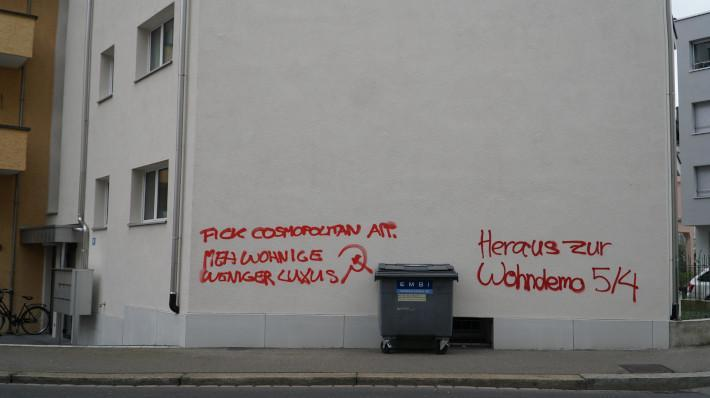 FICK COSMOPOLITAN APT.
MEH WOHNIGE
WENIGER LUXUS
Heraus zur
Wohndemo 5/4
EMBI